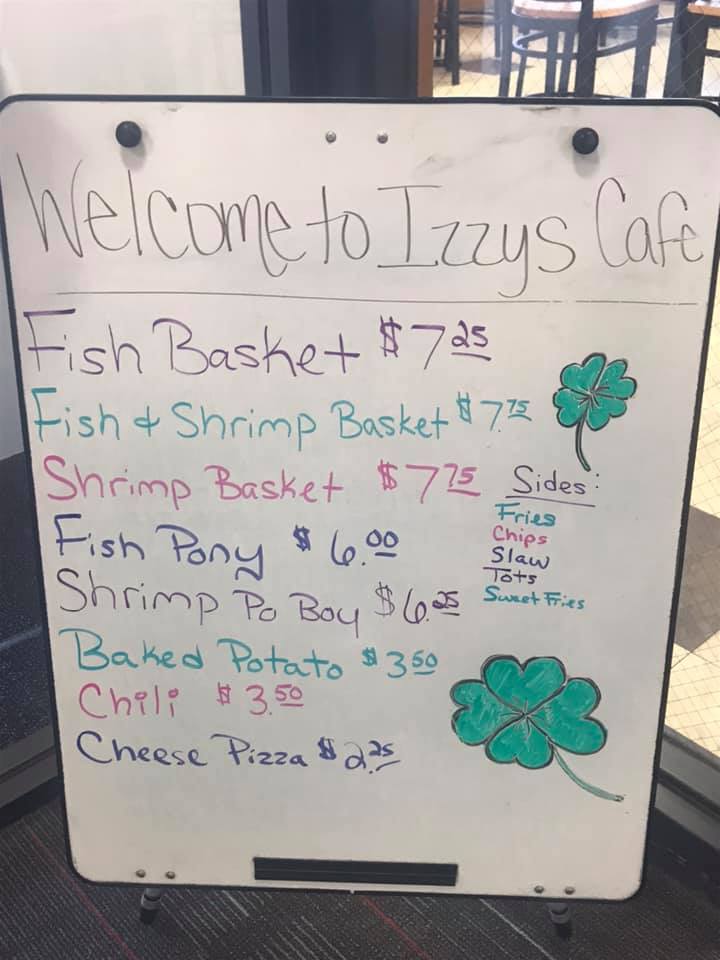 Welcome to Izzys Cafe
Fish Basket $7.25
Fish & Shrimp Basket $7.75
Shrimp Basket $7.75
Fish Pony $6.00
Shrimp Po Boy $6.25
Baked Potato $3.50
Chili $3.50
Cheese Pizza $2.25
Sides:
Fries
Chips
Slaw
Tots
Sweet Fries